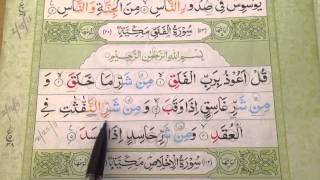 يُوَسْوِسُ فِي صُدُورِ النَّاسِ مِنَ الْجِنَّةِ وَالنَّاسِ
سُورَةُ الْفَلَقِ مَكِّيَّةٌ
بِسْمِ اللهِ الرَّحْمٰنِ الرَّحِيْمِ
قُلْ أَعُوذُ بِرَبِّ الْفَلَقِ مِنْ شَرِّ مَا خَلَقَ وَ
مِنْ شَرِّ غَاسِقٍ إِذَا وَقَبَ وَمِنْ شَرِّ النَّفّٰثٰتِ فِي
الْعُقَدِ وَمِنْ شَرِّ حَاسِدٍ إِذَا حَسَدَ
سُورَةُ الْإِخْلَاصِ مَكِّيَّةٌ